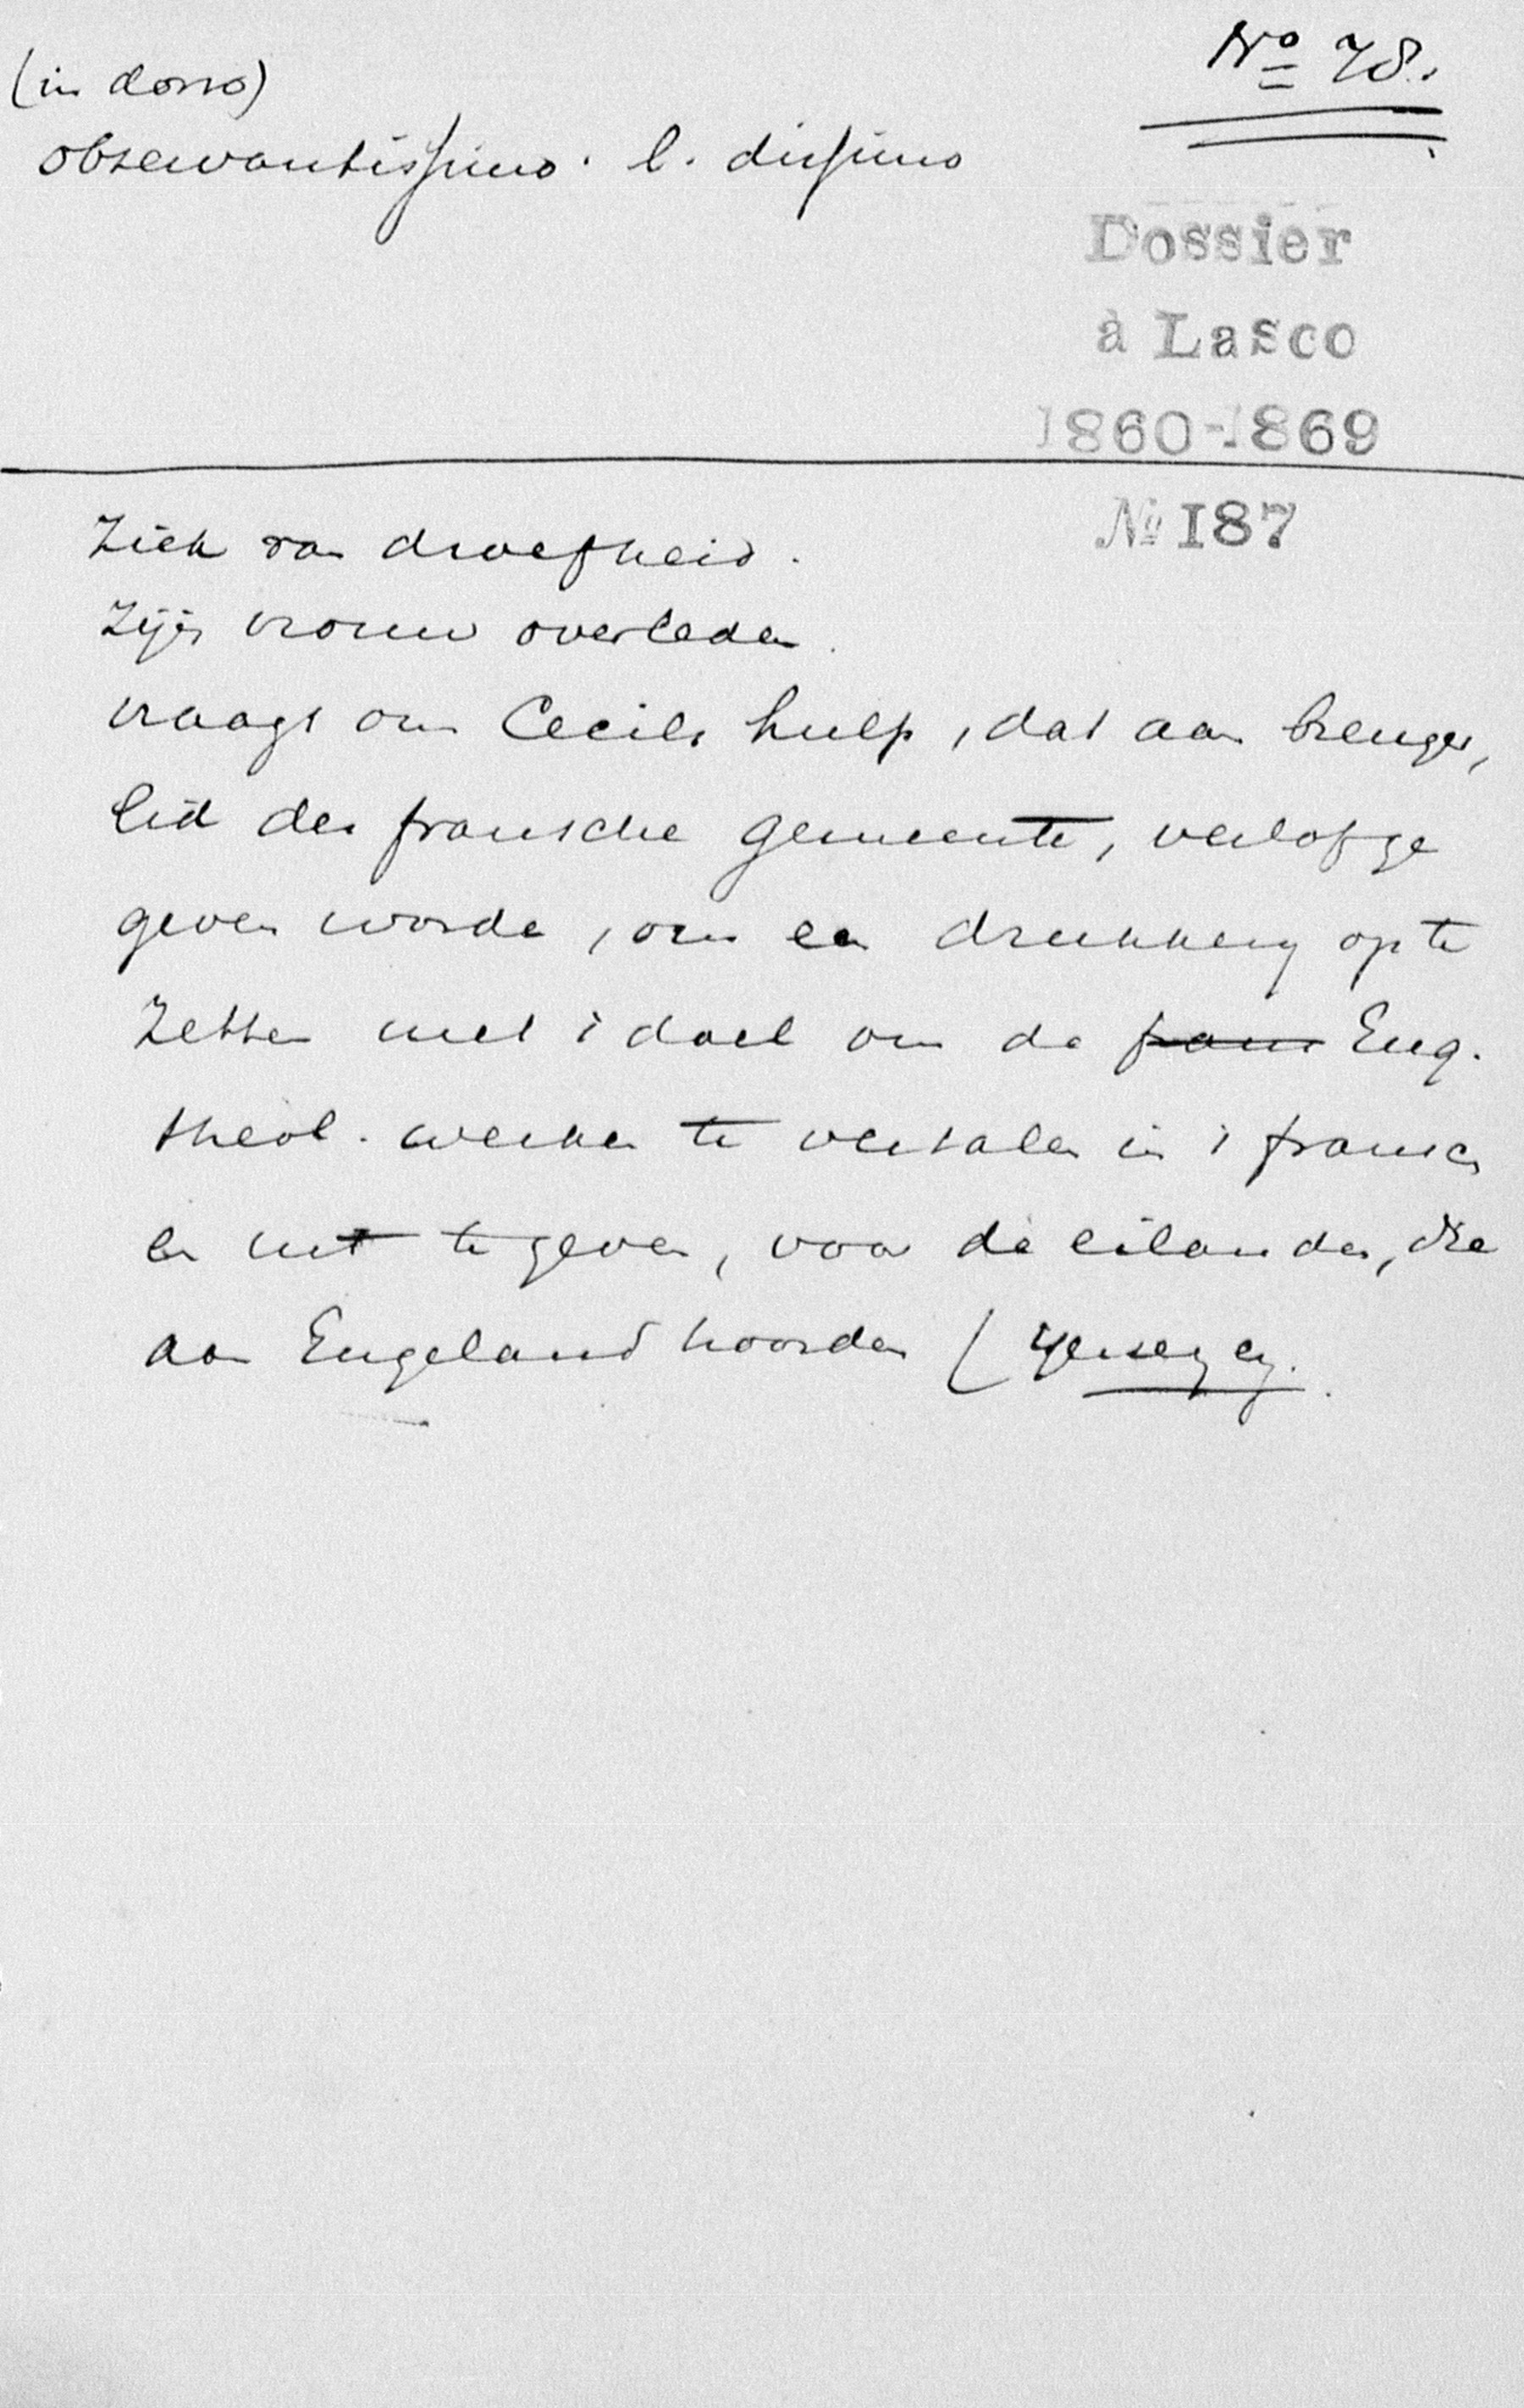 Nº 78.
(in dorso)
observantissimo. l. dissimo
Dossier
à Lasco
1860-1869
Nº 187
Ziek van droefheid.
Zijn vrouw overleden.
vraagt om Cecils hulp, dat aan brenger,
lid der fransche gemeente, verlof ge
geven worde, om een drukkerij op te
zetten met 't doel om de frans Eng.
theol. werken te vertalen in 't fransch
en uit te geven, voor de eilanden, die
aan Engeland hoorden (Yersey